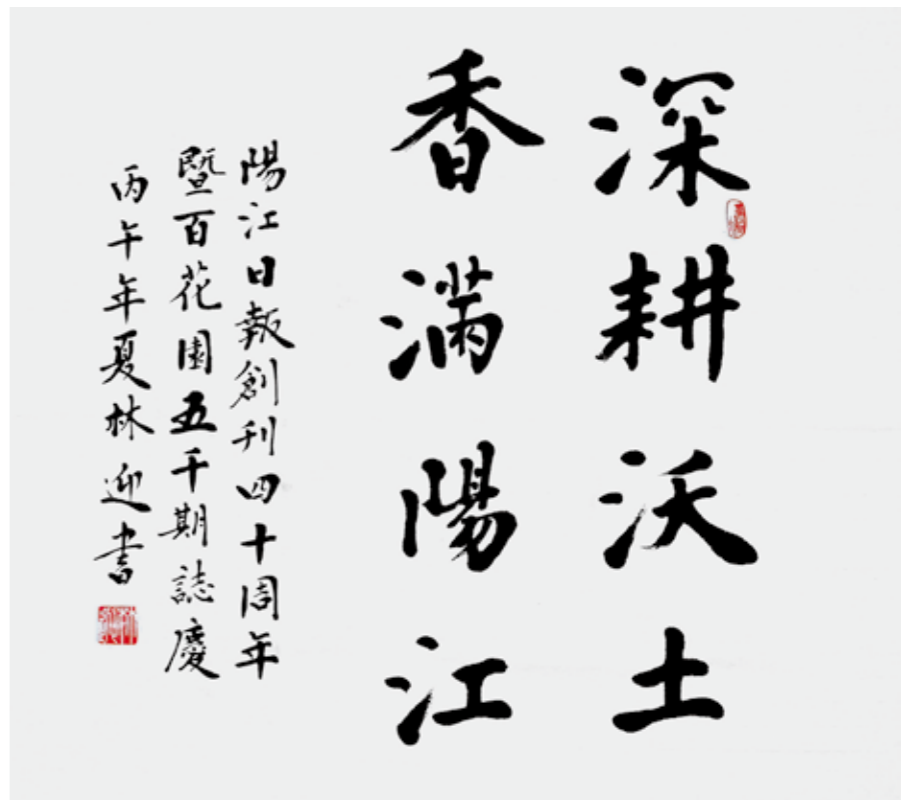 深耕沃土
香滿陽江
陽江日報創刊四十周年
暨百花園五千期誌慶
丙午年夏林迎書